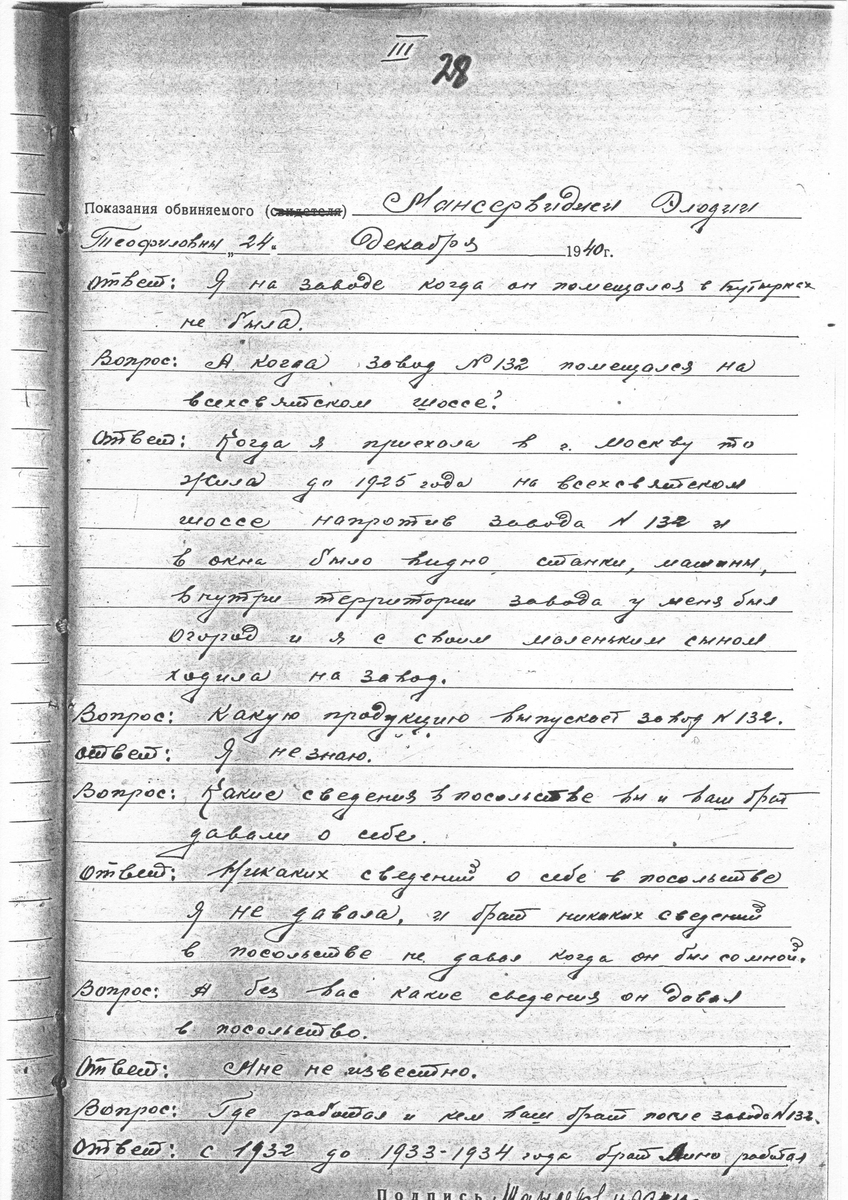 III
28
Показания обвиняемого (свидетеля) Мансервиджи Элодии
Теофиловны „ 24. Декабря 1940 г.
Ответ: Я на заводе когда он помещался в Бутырках
не была.
Вопрос: А когда завод № 132 помещался на
всехсвятском шоссе?
Ответ: Когда я приехала в г. Москву то
жила до 1925 года на всехсвятском
шоссе напротив завода N 132 и
в окна было видно станки, машины,
внутри территории завода у меня был
огород и я с своим маленьким сыном
ходила на завод.
Вопрос: Какую продукцию выпускает завод N 132.
Ответ: Я не знаю.
Вопрос: Какие сведения в посольстве вы и ваш брат
давали о себе.
Ответ: Никаких сведений о себе в посольстве
я не давала, и брат никаких сведений
в посольстве не давал когда он был со мной.
Вопрос: А без вас какие сведения он давал
в посольство.
Ответ: Мне не известно.
Вопрос: Где работал и кем ваш брат после завода N 132.
Ответ: с 1932 до 1933-1934 года брат Лино работал
Подпись